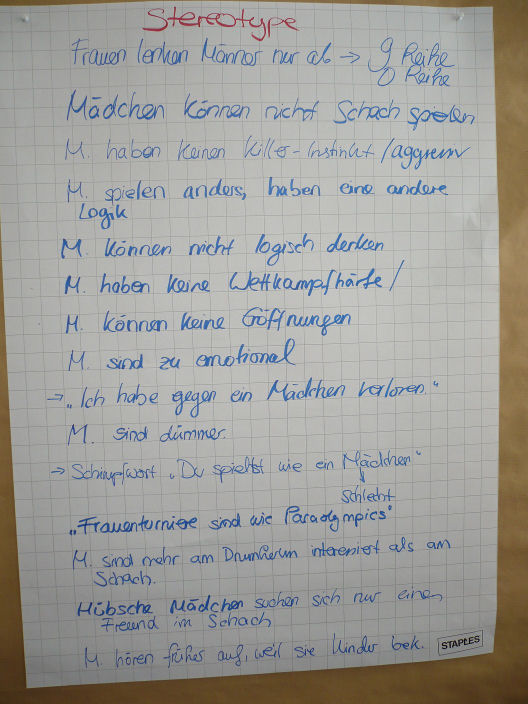 Stereotype
Frauen lenken Männer nur ab → 9 Reihe
0 Reihe
Mädchen können nicht Schach spielen
M. haben keinen Killer-Instinkt/aggressiv
M. spielen anders, haben eine andere
Logik
M. können nicht logisch denken
M. haben keine Wettkampfhärte/
M. können keine Eöffnungen
M. sind zu emotional
→ „Ich habe gegen ein Mädchen verloren."
M. sind dümmer.
→ Schimpfwort „Du spielst wie ein Mädchen"
↓
schlecht
„Frauenturniere sind wie Paraolympics"
M. sind mehr am Drumherum interessiert als am
Schach.
Hübsche Mädchen suchen sich nur einen
Freund im Schach
M. hören früher auf, weil sie Kinder bek.
STAPLES